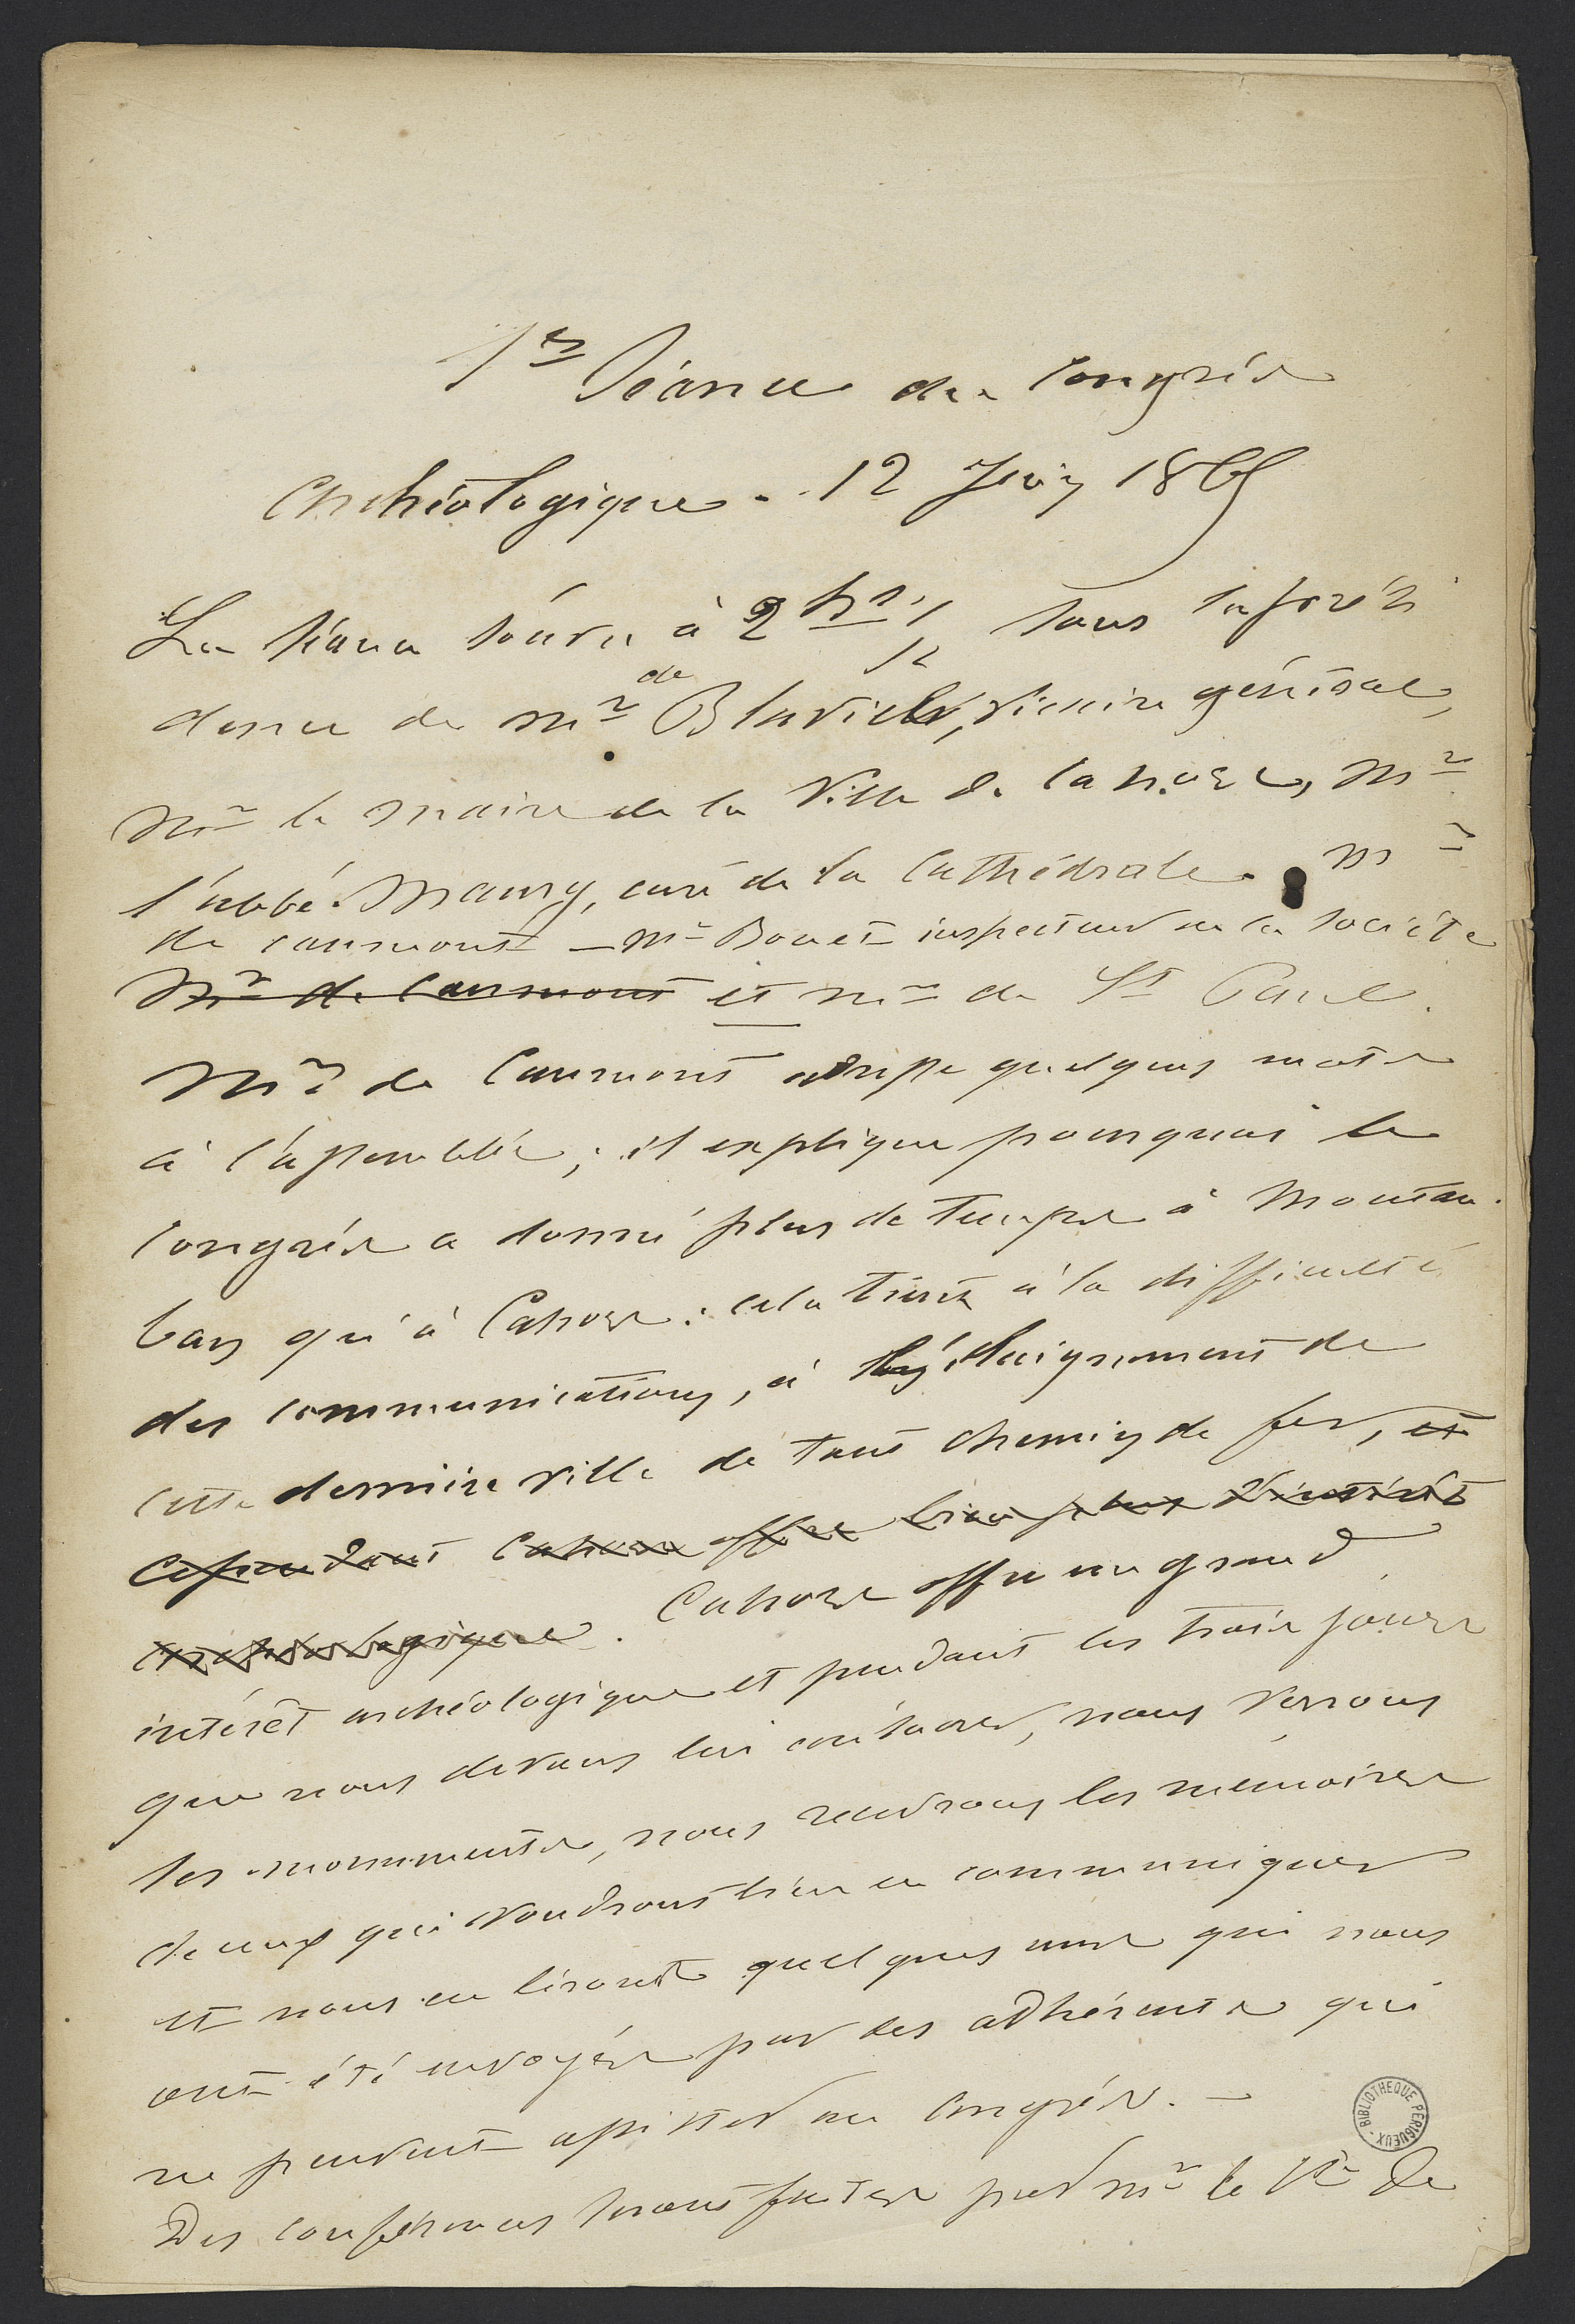 1re Séance du Congrès
Archéologique. 12 Juin 1865
La séance s'ouvre à 2 hrs 1/2 sous la prési
dence de Mr de Blaviel, vicaire général,
Mr le Maire de la Ville de Cahors, Mr
l'abbé Maury, curé de la Cathédrale. Mr
de Caumont — Mr Bouet inspecteur de la Société
Mr de Caumont et Mr de St Paul.
Mr de Caumont adresse quelques mots
à l'assemblée ; il explique pourquoi le
Congrès a donné plus de temps à Montau
ban qu'à Cahors : cela tient à la difficulté
des communications, à l'éloignement de
cette dernière ville de tout chemin de fer, et
Cependant Cahors offre bien plus d'intérêt
archéologique. Cahors offre un grand
intérêt archéologique et pendant les trois jours
que nous devons lui consacrer, nous verrons
les monuments, nous recevrons les mémoires
de ceux qui voudront bien en communiquer
et nous en lirons quelques uns qui nous
ont été envoyés par des adhérents qui
ne peuvent assister au Congrès. —
Des conférences seront faites par Mr le Vte de
BIBLIOTHEQUE PERIGUEUX